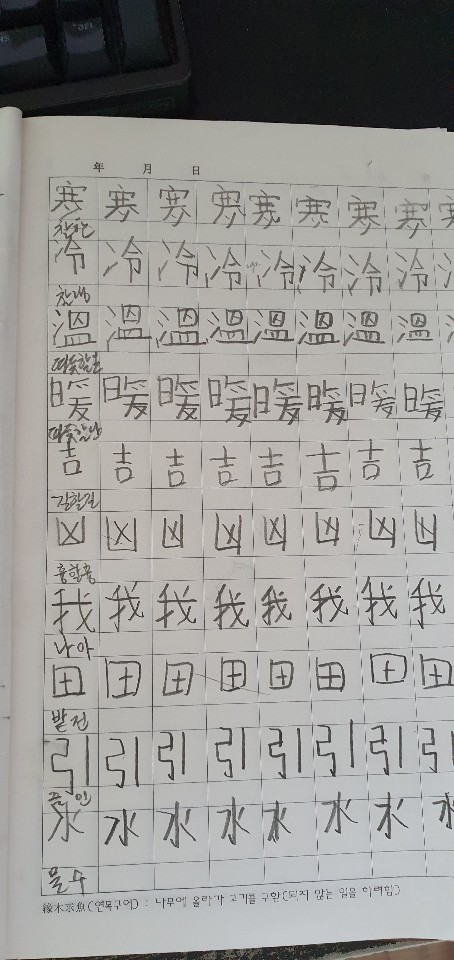 年 月 日
寒 寒 寒 寒 寒 寒 寒 寒 寒
찰한
冷 冷 冷 冷 冷 冷 冷 冷
溫 溫 溫 溫 溫 溫 溫 溫
따뜻할온
暖 暖 暖 暖 暖 暖 暖 暖
따뜻할난
吉 吉 吉 吉 吉 吉 吉 吉
길할길
凶 凶 凶 凶 凶 凶 凶 凶
흉할흉
我 我 我 我 我 我 我 我
나아
田 田 田 田 田 田 田 田
밭전
引 引 引 引 引 引 引 引
끌인
水 水 水 水 水 水 水 水
물수
緣木求魚(연목구어) : 나무에 올라가 고기를 구함(되지 않는 일을 하려함)